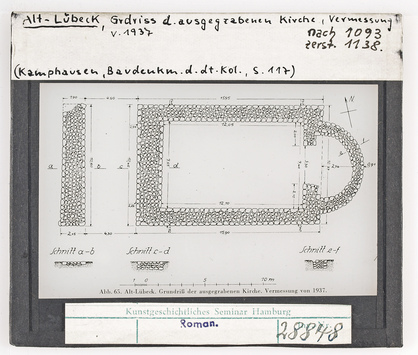 Alt-Lübeck, Grdriss d. ausgegrabenen Kirche, Vermessung
v. 1937
nach 1093
zerst. 1138.
(Kamphausen, Baudenkm. d. dt. Kol., S. 117)
N
a
b
c
d
Schnitt a-b
Schnitt c-d
Schnitt e-f
1
0
5
10 m
Abb. 65. Alt-Lübeck. Grundriß der ausgegrabenen Kirche. Vermessung von 1937.
Kunstgeschichtliches Seminar Hamburg
Roman.
28848